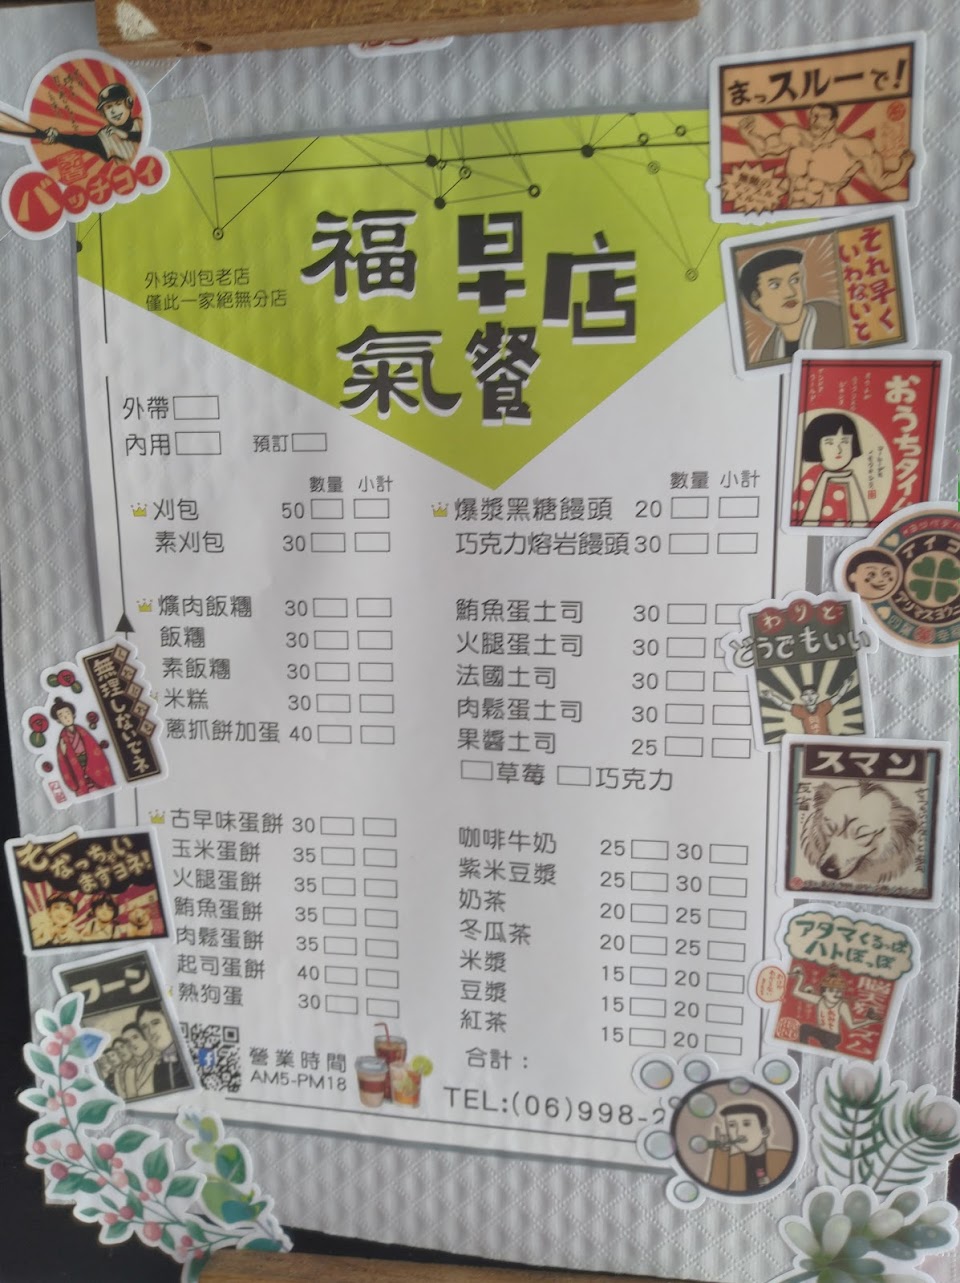 福氣早餐店
外垵刈包老店
僅此一家絕無分店
外帶
內用 預訂
數量 小計
刈包 50
素刈包 30
爌肉飯糰 30
飯糰 30
素飯糰 30
米糕 30
蔥抓餅加蛋 40
古早味蛋餅 30
玉米蛋餅 35
火腿蛋餅 35
鮪魚蛋餅 35
肉鬆蛋餅 35
起司蛋餅 40
熱狗蛋 30
營業時間
AM5-PM18
數量 小計
爆漿黑糖饅頭 20
巧克力熔岩饅頭 30
鮪魚蛋土司 30
火腿蛋土司 30
法國土司 30
肉鬆蛋土司 30
果醬土司 25
草莓 巧克力
咖啡牛奶 25 30
紫米豆漿 25 30
奶茶 20 25
冬瓜茶 20 25
米漿 15 20
豆漿 15 20
紅茶 15 20
合計：
TEL:(06)998-2
バッチコイ
まっスルーで!
それ早く
いわないと
おうちタイ
アイコ
わりと
どうでもいい
スマン
反省
アタマくるっぱ
ハトぽっぽ
無理しないでネ
なっちゃい
ますヨネ!
アーン